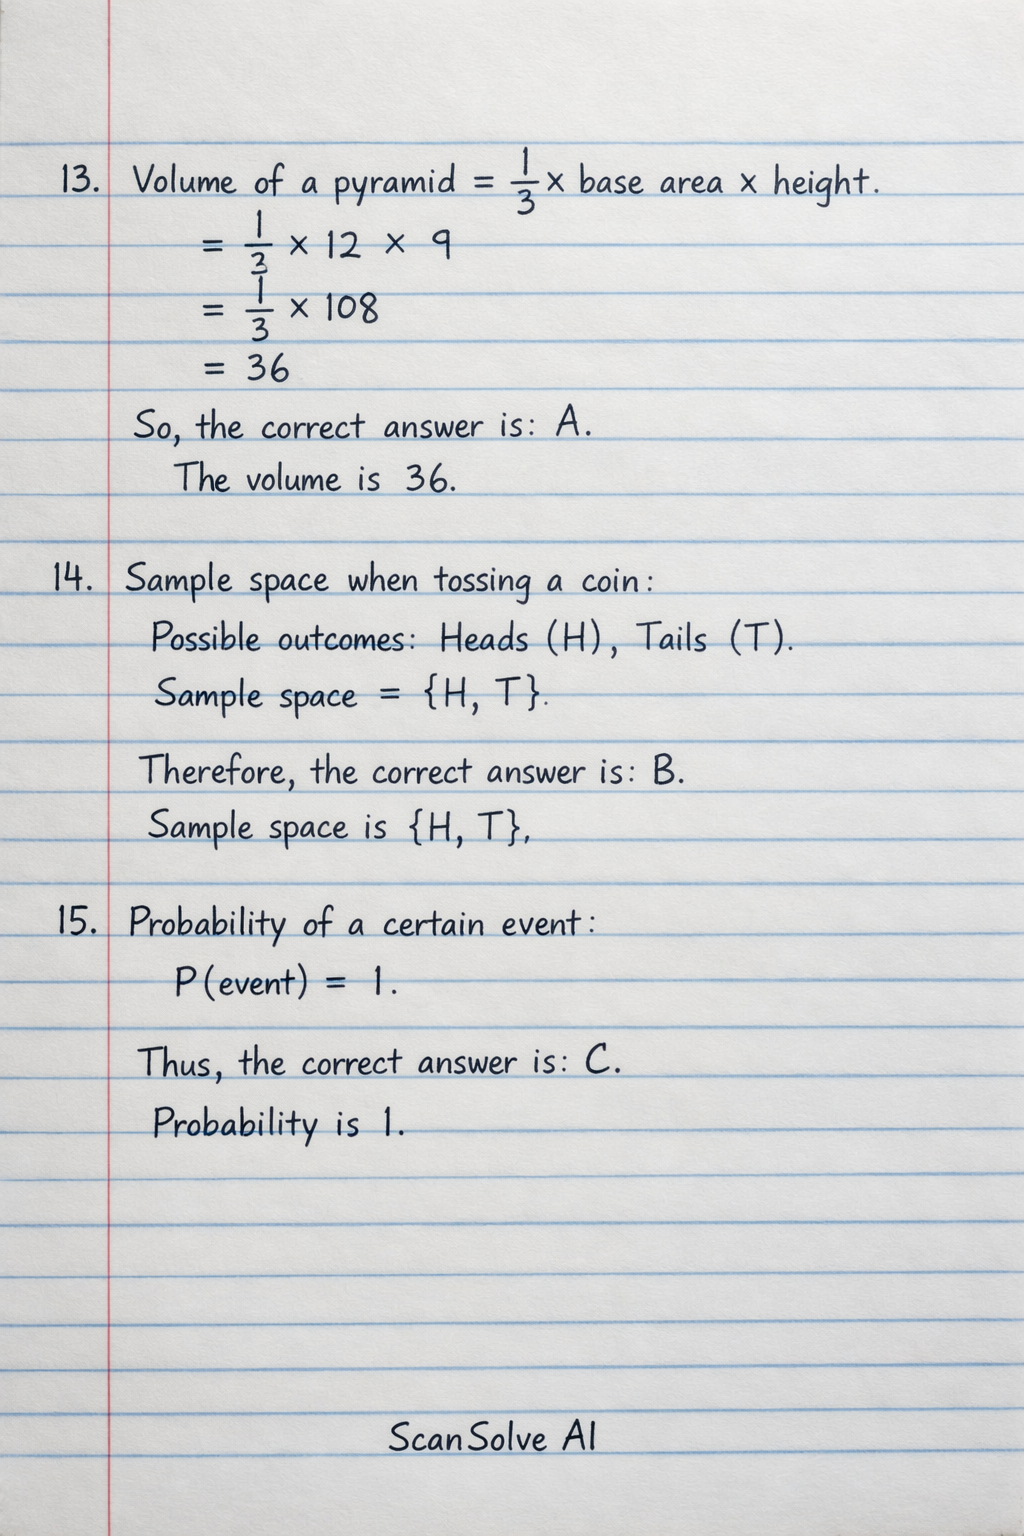 13. Volume of a pyramid = 1/3 × base area × height.
= 1/3 × 12 × 9
= 1/3 × 108
= 36
So, the correct answer is: A.
The volume is 36.
14. Sample space when tossing a coin:
Possible outcomes: Heads (H), Tails (T).
Sample space = {H, T}.
Therefore, the correct answer is: B.
Sample space is {H, T},
15. Probability of a certain event:
P(event) = 1.
Thus, the correct answer is: C.
Probability is 1.
ScanSolve AI